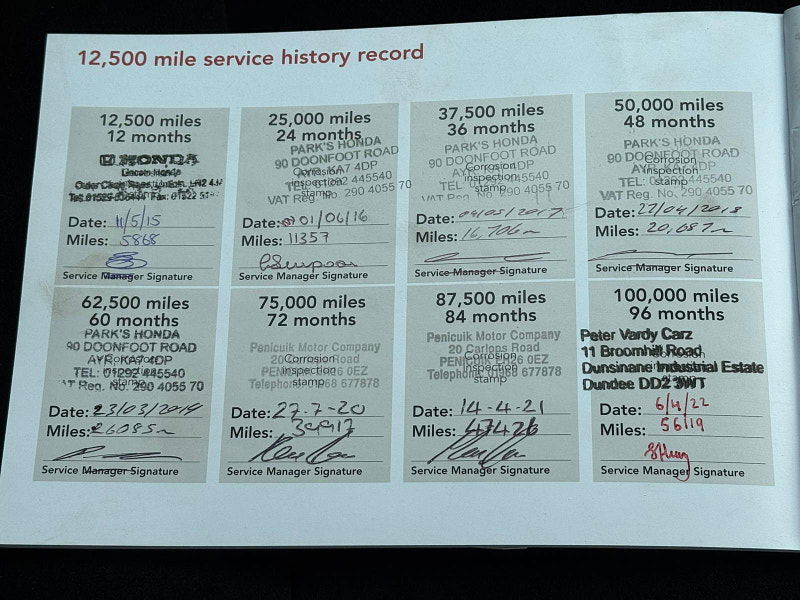 12,500 mile service history record
12,500 miles
12 months
HONDA
Lincoln Honda
Date: 11/5/15
Miles: 5868
Service Manager Signature
25,000 miles
24 months
PARK'S HONDA
90 DOONFOOT ROAD
AYR KA7 4DP
Corrosion
inspection
stamp
TEL: 01292 445540
VAT Reg. No. 290 4055 70
Date: 01/06/16
Miles: 11357
Service Manager Signature
37,500 miles
36 months
PARK'S HONDA
90 DOONFOOT ROAD
AYR KA7 4DP
Corrosion
inspection
stamp
TEL: 01292 445540
VAT Reg. No. 290 4055 70
Date: 04/05/2017
Miles: 16,706m
Service Manager Signature
50,000 miles
48 months
PARK'S HONDA
90 DOONFOOT ROAD
AYR KA7 4DP
Corrosion
inspection
stamp
TEL: 01292 445540
VAT Reg. No. 290 4055 70
Date: 27/04/2018
Miles: 20,687m
Service Manager Signature
62,500 miles
60 months
PARK'S HONDA
90 DOONFOOT ROAD
AYR KA7 4DP
TEL: 01292 445540
stamp
VAT Reg. No. 290 4055 70
Date: 23/03/2019
Miles: 26085m
Service Manager Signature
75,000 miles
72 months
Penicuik Motor Company
20 Carlops Road
Corrosion
inspection
stamp
PENICUIK EH26 0EZ
Telephone 01968 677878
Date: 27-7-20
Miles: 39917
Service Manager Signature
87,500 miles
84 months
Penicuik Motor Company
20 Carlops Road
Corrosion
inspection
stamp
PENICUIK EH26 0EZ
Telephone 01968 677878
Date: 14-4-21
Miles: 47426
Service Manager Signature
100,000 miles
96 months
Peter Vardy Carz
11 Broomhill Road
Dunsinane Industrial Estate
Dundee DD2 3WT
Date: 6/4/22
Miles: 56119
Service Manager Signature